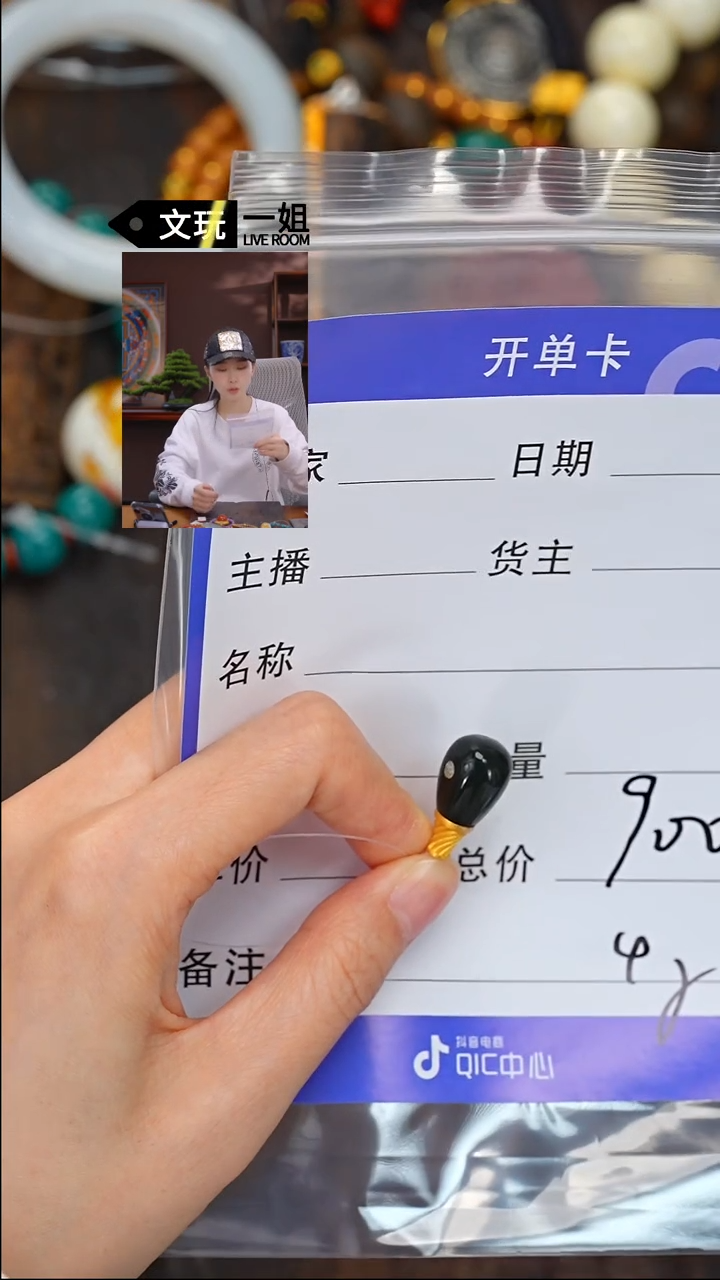 文玩 一姐
LIVE ROOM
开单卡
家 日期
主播 货主
名称
量
价 总价 900
备注
抖音电商
QIC中心